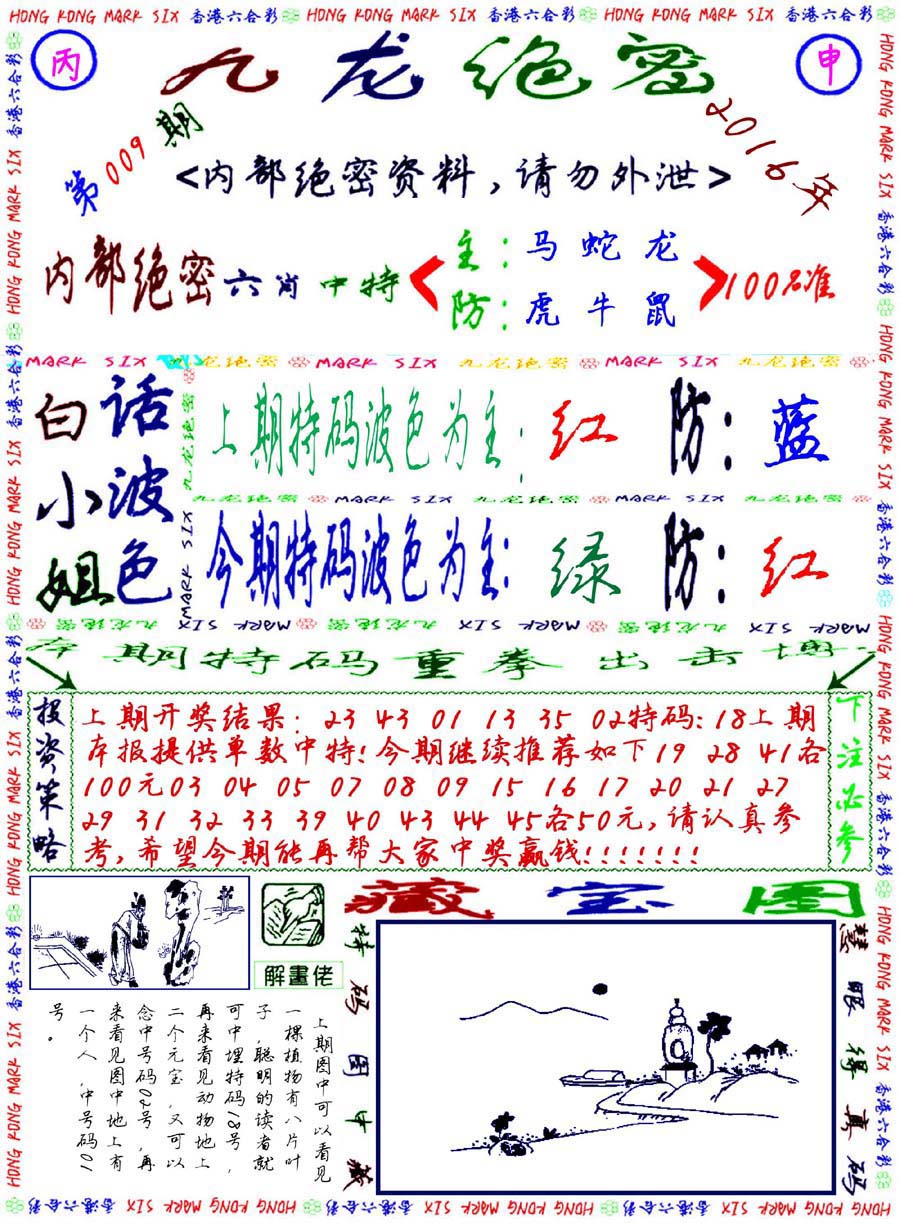 HONG KONG MARK SIX 香港六合彩 HONG KONG MARK SIX 香港六合彩 HONG KONG MARK SIX 香港六合彩
丙
九龙绝密
申
第009期
2016年
<内部绝密资料,请勿外泄>
内部绝密六肖中特
主:马蛇龙
防:虎牛鼠
100%准
MARK SIX 九龙绝密 MARK SIX 九龙绝密 MARK SIX 九龙绝密
白小姐
话波色
上期特码波色为主:红 防:蓝
九龙绝密 MARK SIX 九龙绝密 MARK SIX 九龙绝密
今期特码波色为主:绿 防:红
九龙绝密 MARK SIX 九龙绝密 MARK SIX 九龙绝密 MARK SIX
本期特码重拳出击博
投资策略
上期开奖结果: 23 43 01 13 35 02特码:18上期
本报提供单数中特!今期继续推荐如下19 28 41各
100元03 04 05 07 08 09 15 16 17 20 21 27
29 31 32 33 39 40 43 44 45各50元,请认真参
考,希望今期能再帮大家中奖赢钱!!!!!!!
下注必参
解畫佬
藏宝图
特码图中藏
慧眼得真码
上期图中可以看见
一棵植物有八片叶
子,聪明的读者就
可中埋特码18号,
再来看见动物地上
二个元宝,又可以
念中号码02号,再
来看见图中地上有
一个人,中号码01
号。
HONG KONG MARK SIX 香港六合彩 HONG KONG MARK SIX 香港六合彩 HONG KONG MARK SIX 香港六合彩